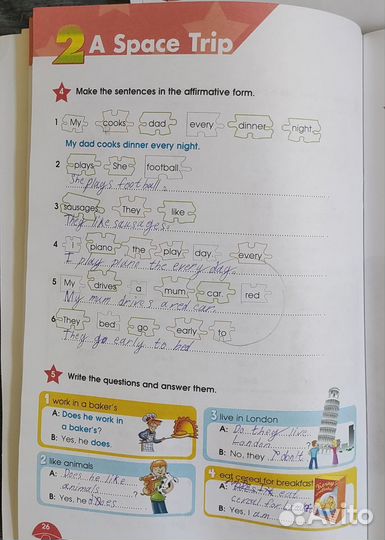 2 A Space Trip
4 Make the sentences in the affirmative form.
1 My cooks dad every dinner night.
My dad cooks dinner every night.
2 plays She football
She plays football.
3 sausages They like
They like sausages.
4 I piano the play day. every
I play piano the every day.
5 My drives a mum car. red
My mum drives a red car.
6 They bed go early to
They go early to bed
5 Write the questions and answer them.
1 work in a baker's
A: Does he work in
a baker's?
B: Yes, he does.
3 live in London
A: Do they live
London ?
B: No, they don't
2 like animals
A: Does he like
animals ?
B: Yes, he does
4 eat cereal for breakfast
A: eat
cereal for
B: Yes, I am
26
Avito